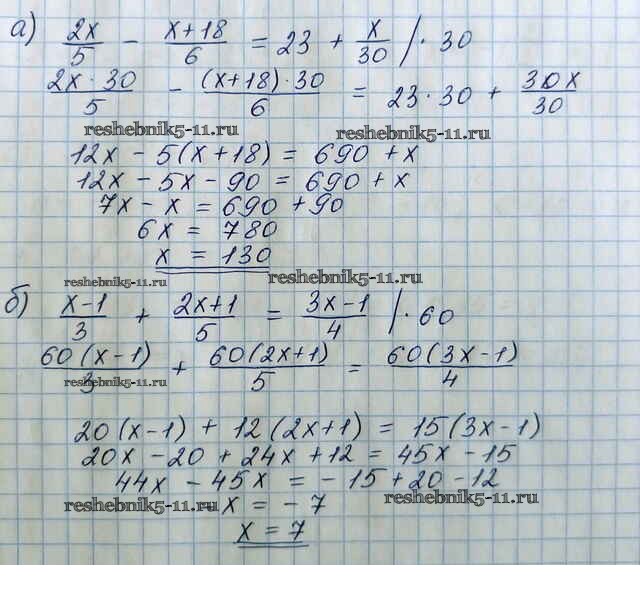 а) 2x/5 - (x+18)/6 = 23 + x/30 /· 30
2x·30/5 - (x+18)·30/6 = 23·30 + 30x/30
reshebnik5-11.ru reshebnik5-11.ru
12x - 5(x+18) = 690 + x
12x - 5x - 90 = 690 + x
7x - x = 690 + 90
6x = 780
x = 130
reshebnik5-11.ru reshebnik5-11.ru
б) (x-1)/3 + (2x+1)/5 = (3x-1)/4 /· 60
60(x-1)/3 + 60(2x+1)/5 = 60(3x-1)/4
reshebnik5-11.ru
20(x-1) + 12(2x+1) = 15(3x-1)
20x - 20 + 24x + 12 = 45x - 15
44x - 45x = -15 + 20 - 12
reshebnik5-11.ru reshebnik5-11.ru
-x = -7
x = 7